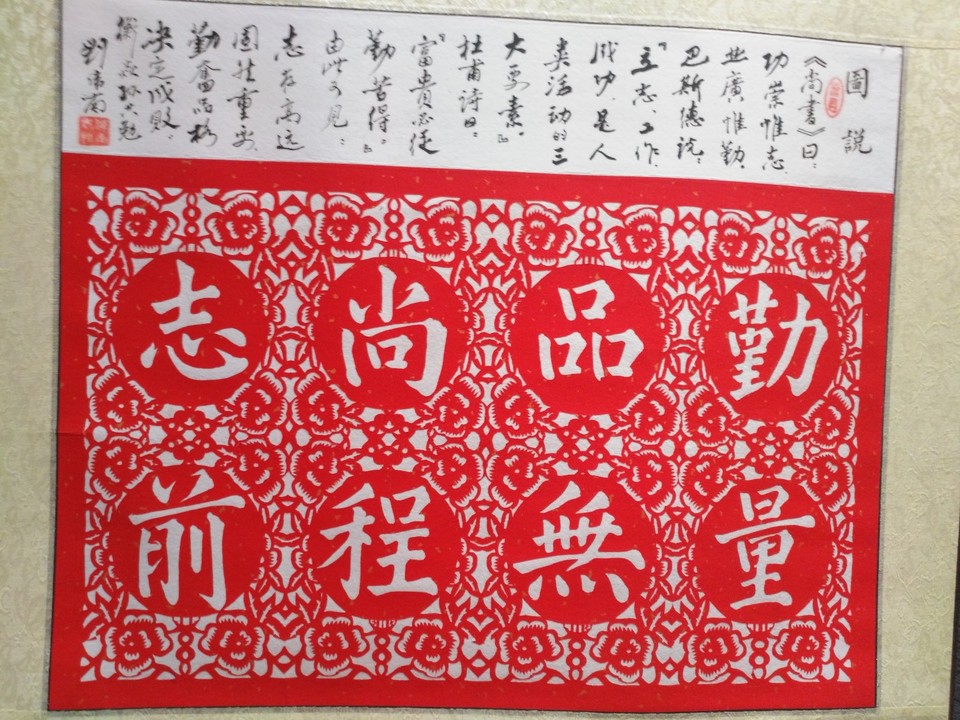 圖說
《尚書》曰：
功崇惟志，
业廣惟勤。
巴斯德说：
『立志、工作、
成功，是人
类活动的三
大要素。』
杜甫诗曰：
『富貴必從
勤苦得。』
由此可见：
志存高远
固然重要，
勤奋品格
决定成败。
孙共勉
劉
志尚品勤
前程無量